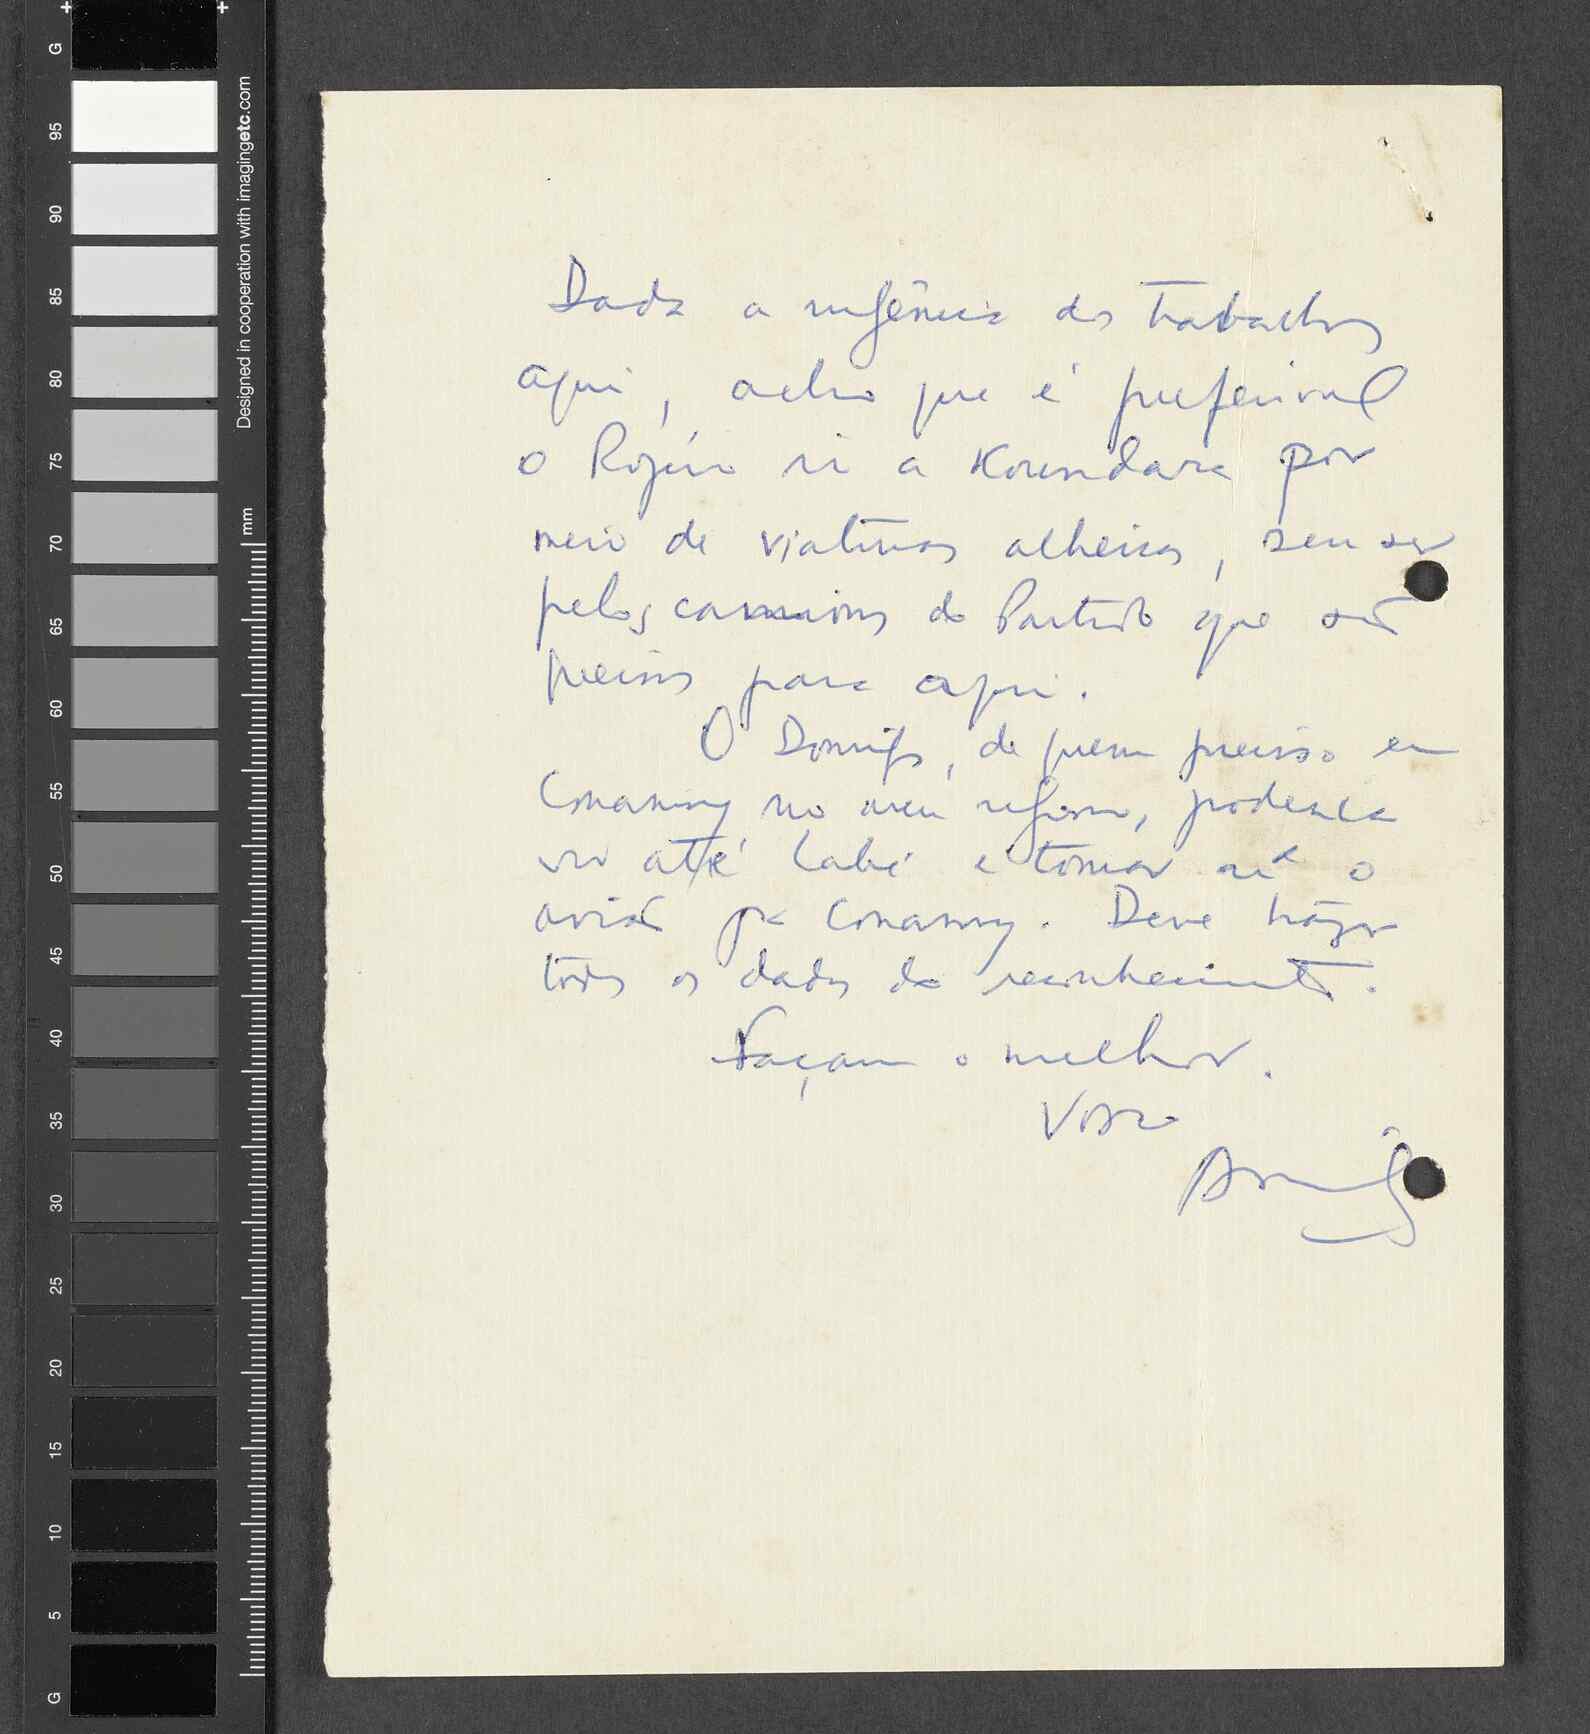 G
95
90
85
80
75
70
65
60
55
50
45
40
35
30
25
20
15
10
5
G
Designed in cooperation with imagingetc.com
mm
Dada a urgência dos trabalhos
aqui, acho que é preferivel
o Rogério ir a Koundara por
meio de viaturas alheias, sem ser
pelos camions do Partido que são
precisos para aqui.
O Domingos, de quem preciso em
Conakry no meu regresso, poderia
vir até Labé e tomar aí o
avião pª Conakry. Deve trazer
todos os dados do reconhecimento.
Façam o melhor.
Vosso